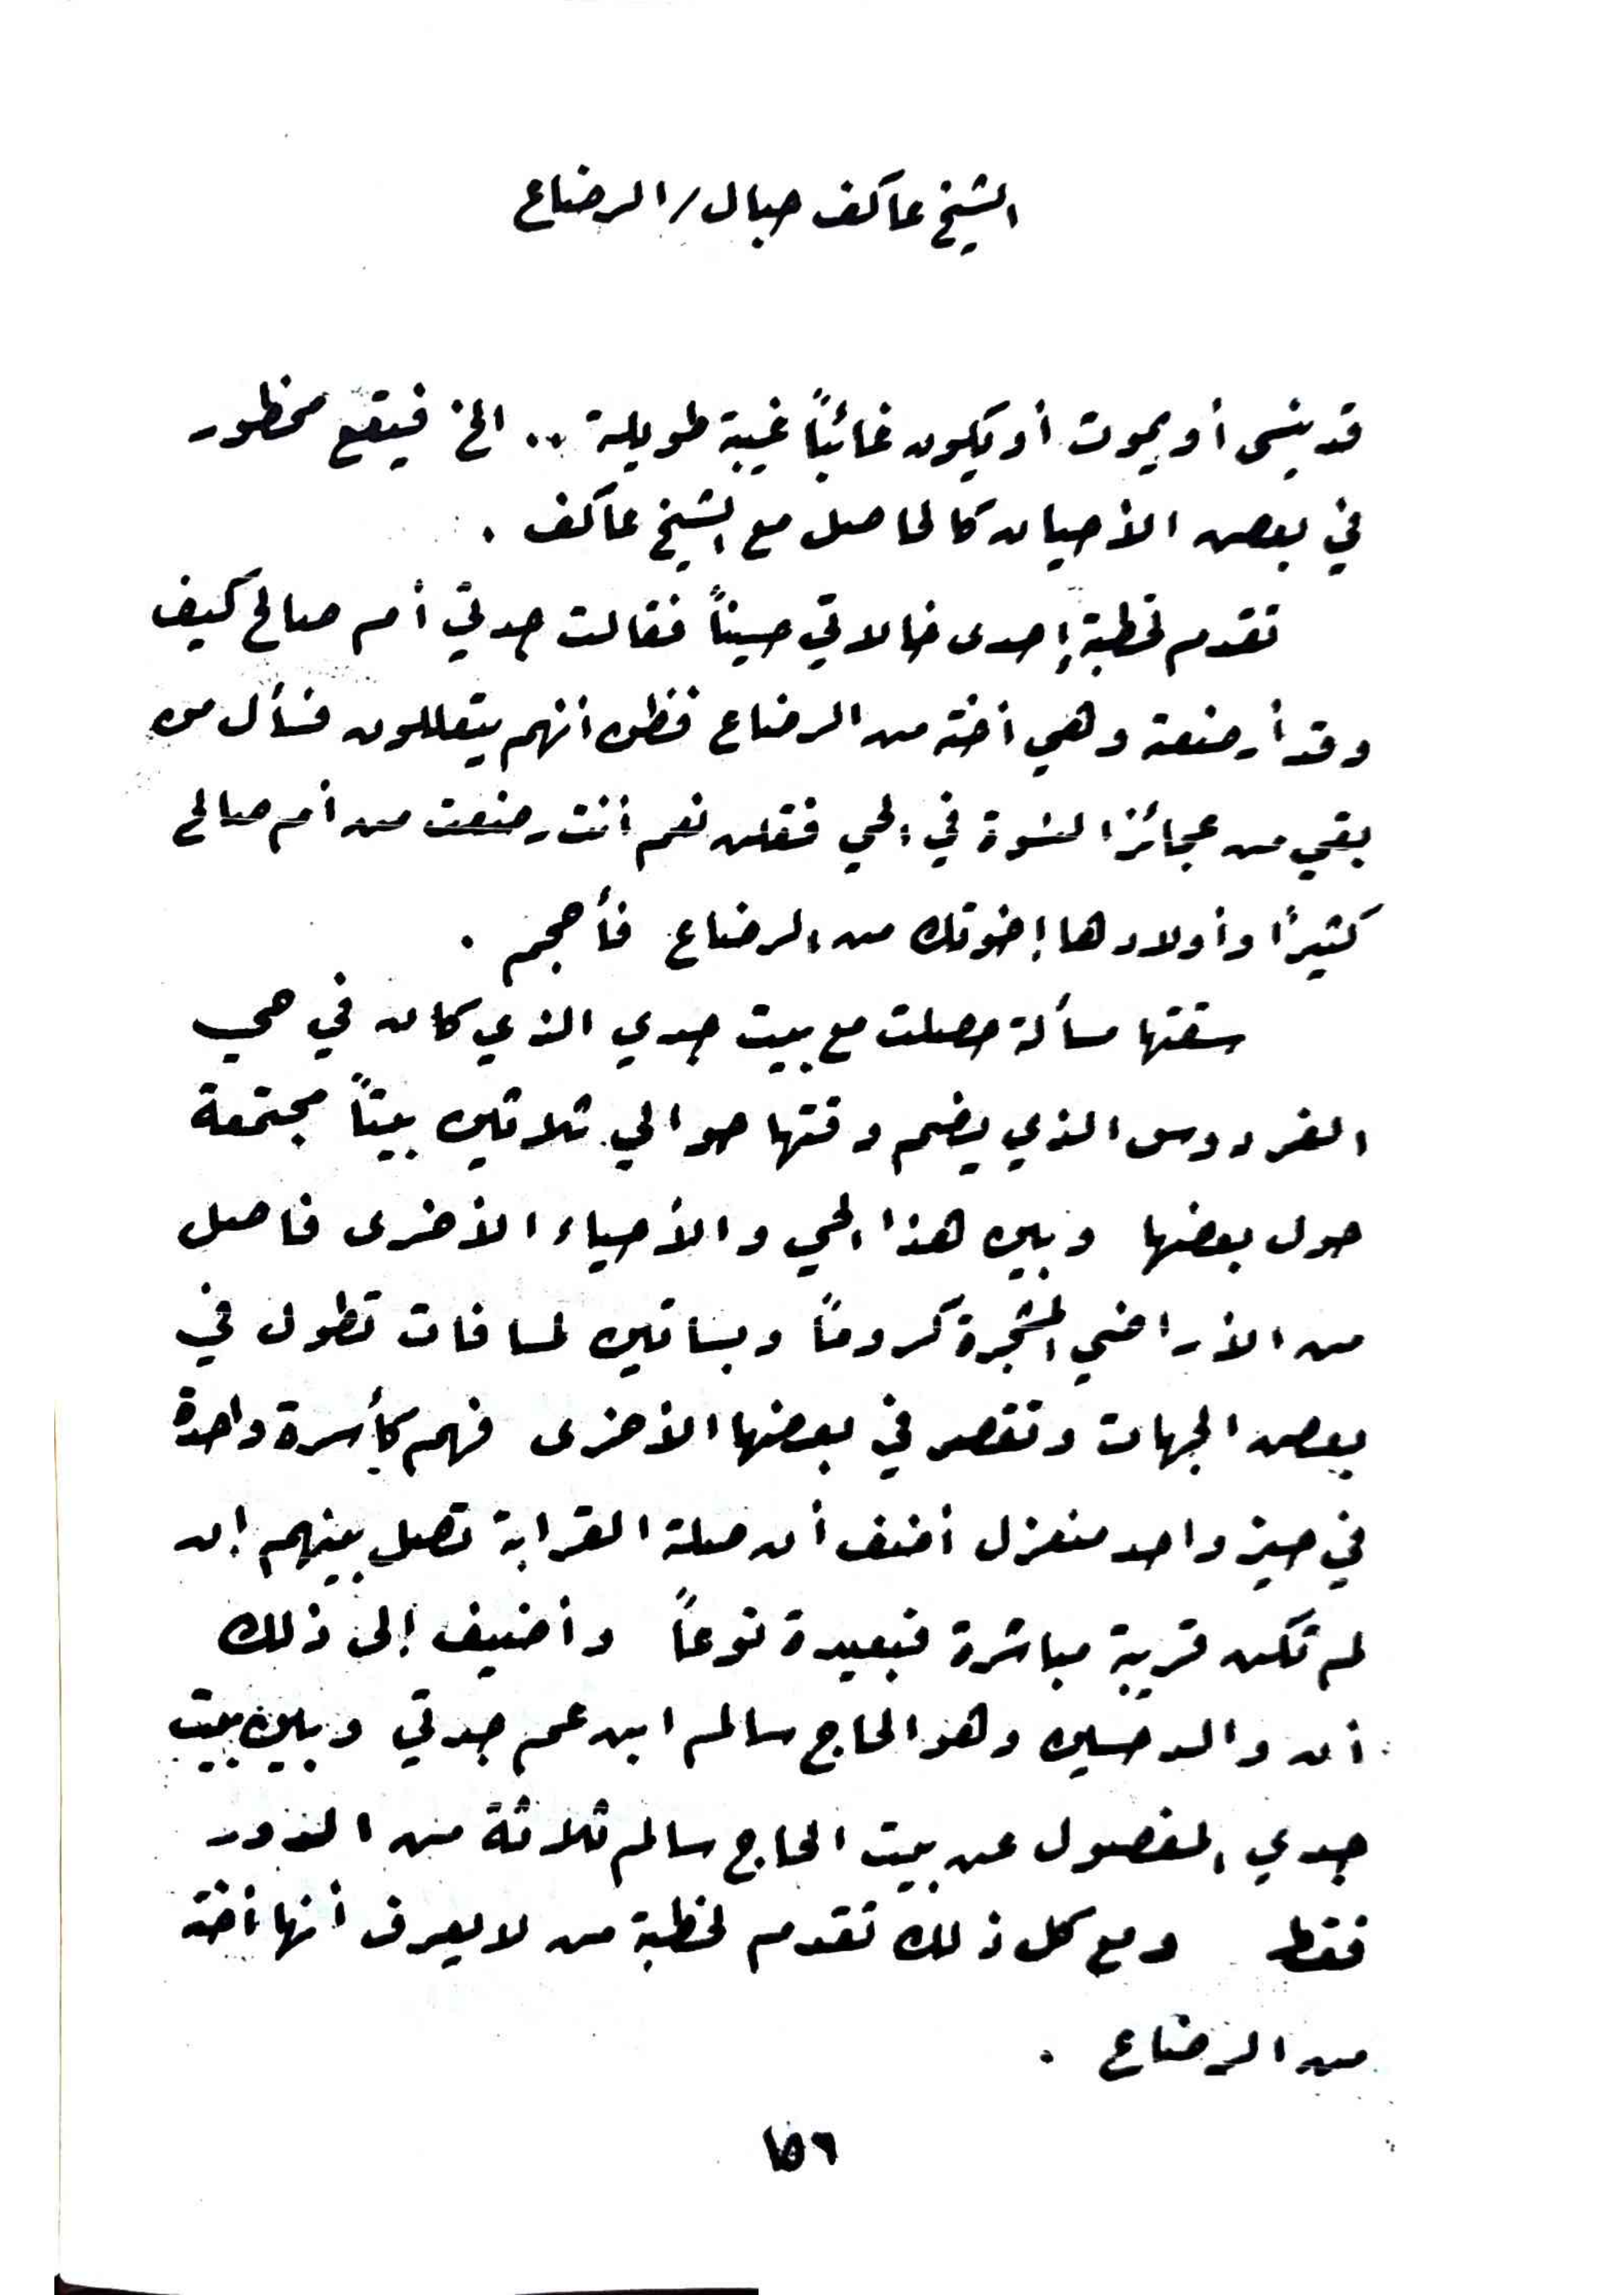 الشيخ عاكف حبال/الرضاع
قد ينسى أو يموت أو يكون غائباً غيبة طويلة .. الخ فيقع محظور
في بعض الأحيان كالحاصل مع الشيخ عاكف .
تقدم لخطبة إحدى خالاتي حسيناً فقالت جدتي أم صالح كيف
وقد أرضعته وهي أخته من الرضاع فظن أنهم يتعللون فسأل من
بقي من عجائز النسوة في الحي فقلن نعم أنت رضعت من أم صالح
كثيراً وأولادها إخوتك من الرضاع فأحجم .
سقتها مسألة حصلت مع بيت جدي الذي كان في حي
الفردوس الذي يضم وقتها حوالي ثلاثين بيتاً مجتمعة
حول بعضها وبين هذا الحي والأحياء الأخرى فاصل
من الأراضي المشجرة كروماً وبساتين لمسافات تطول في
بعض الجهات وتقصر في بعضها الأخرى فهم كأسرة واحدة
في حيز واحد منعزل أضف أن صلة القرابة تصل بينهم إن
لم تكن قريبة مباشرة فبعيدة نوعاً وأضيف إلى ذلك
أن والد حسين وهو الحاج سالم ابن عم جدتي وبين بيت
جدي المفصول عن بيت الحاج سالم ثلاثة من الدور
فقط ومع كل ذلك تقدم لخطبة من لا يعرف أنها أخته
من الرضاع .
١٥٦